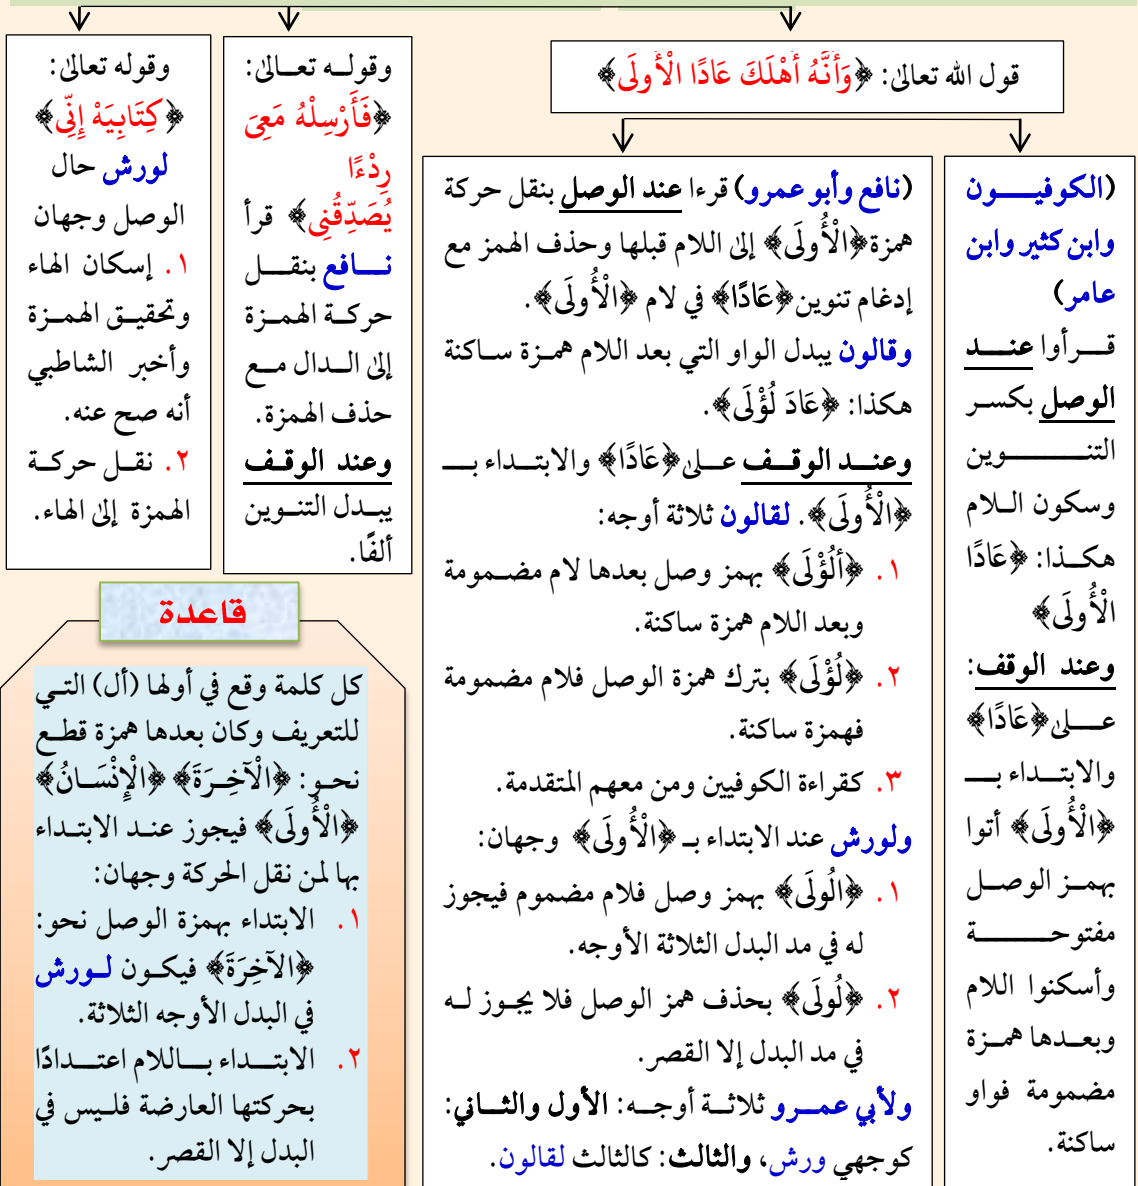 قول الله تعالىٰ: ﴿وَأَنَّهُ أَهْلَكَ عَادًا الْأُولَى﴾
(الكوفيـــون
وابن كثير وابن
عامر)
قـــرأوا عنـــد
الوصل بكسـر
التنـــــوين
وسكون الـلام
هكـذا: ﴿عَادًا
الْأُولَى﴾
وعند الوقف:
عـــلى ﴿عَادًا﴾
والابتـداء بـــ
﴿الْأُولَى﴾ أتوا
بهمـز الوصـل
مفتوحـــــة
وأسكنوا اللام
وبعـدها همـزة
مضمومة فواو
ساكنة.
(نافع وأبو عمرو) قرءا عند الوصل بنقل حركة
همزة ﴿الْأُولَى﴾ إلىٰ اللام قبلها وحذف الهمز مع
إدغام تنوين ﴿عَادًا﴾ في لام ﴿الْأُولَى﴾.
وقالون يبدل الواو التي بعد اللام همـزة سـاكنة
هكذا: ﴿عَادَ لُؤْلَى﴾.
وعنــد الوقــف عــلى ﴿عَادًا﴾ والابتـداء بـــ
﴿الْأُولَى﴾. لقالون ثلاثة أوجه:
١. ﴿أَلُؤْلَى﴾ بهمز وصل بعدها لام مضـمومة
وبعد اللام همزة ساكنة.
٢. ﴿لُؤْلَى﴾ بترك همزة الوصل فلام مضمومة
فهمزة ساكنة.
٣. كقراءة الكوفيين ومن معهم المتقدمة.
ولورش عند الابتداء بـ ﴿الْأُولَى﴾ وجهان:
١. ﴿الُولَى﴾ بهمز وصل فلام مضموم فيجوز
له في مد البدل الثلاثة الأوجه.
٢. ﴿لُولَى﴾ بحذف همز الوصل فلا يجـوز لـه
في مد البدل إلا القصر.
ولأبي عمــرو ثلاثــة أوجــه: الأول والثــاني:
كوجهي ورش، والثالث: كالثالث لقالون.
وقولــه تعــالىٰ:
﴿فَأَرْسِلْهُ مَعِىَ
رِدْءًا
يُصَدِّقُنِى﴾ قرأ
نـــافع بنقـــل
حركـة الهمـزة
إلىٰ الـدال مـع
حذف الهمزة.
وعند الوقـف
يبـدل التنـوين
ألفًا.
وقوله تعالىٰ:
﴿كِتَابِيَهْ إِنِّى﴾
لورش حال
الوصل وجهان
١. إسكان الهاء
وتحقيـق الهمـزة
وأخبر الشاطبي
أنه صح عنه.
٢. نقـل حركـة
الهمزة إلىٰ الهاء.
قاعدة
كل كلمة وقع في أولها (أل) التـي
للتعريف وكان بعدها همزة قطـع
نحـو: ﴿الْآخِـرَةَ﴾ ﴿الْإِنْسَـانُ﴾
﴿الْأُولَى﴾ فيجوز عنـد الابتـداء
بها لمن نقل الحركة وجهان:
١. الابتداء بهمزة الوصل نحو:
﴿الآخِرَةَ﴾ فيكـون لـورش
في البدل الأوجه الثلاثة.
٢. الابتـداء بـاللام اعتـدادًا
بحركتها العارضة فلـيس في
البدل إلا القصر.